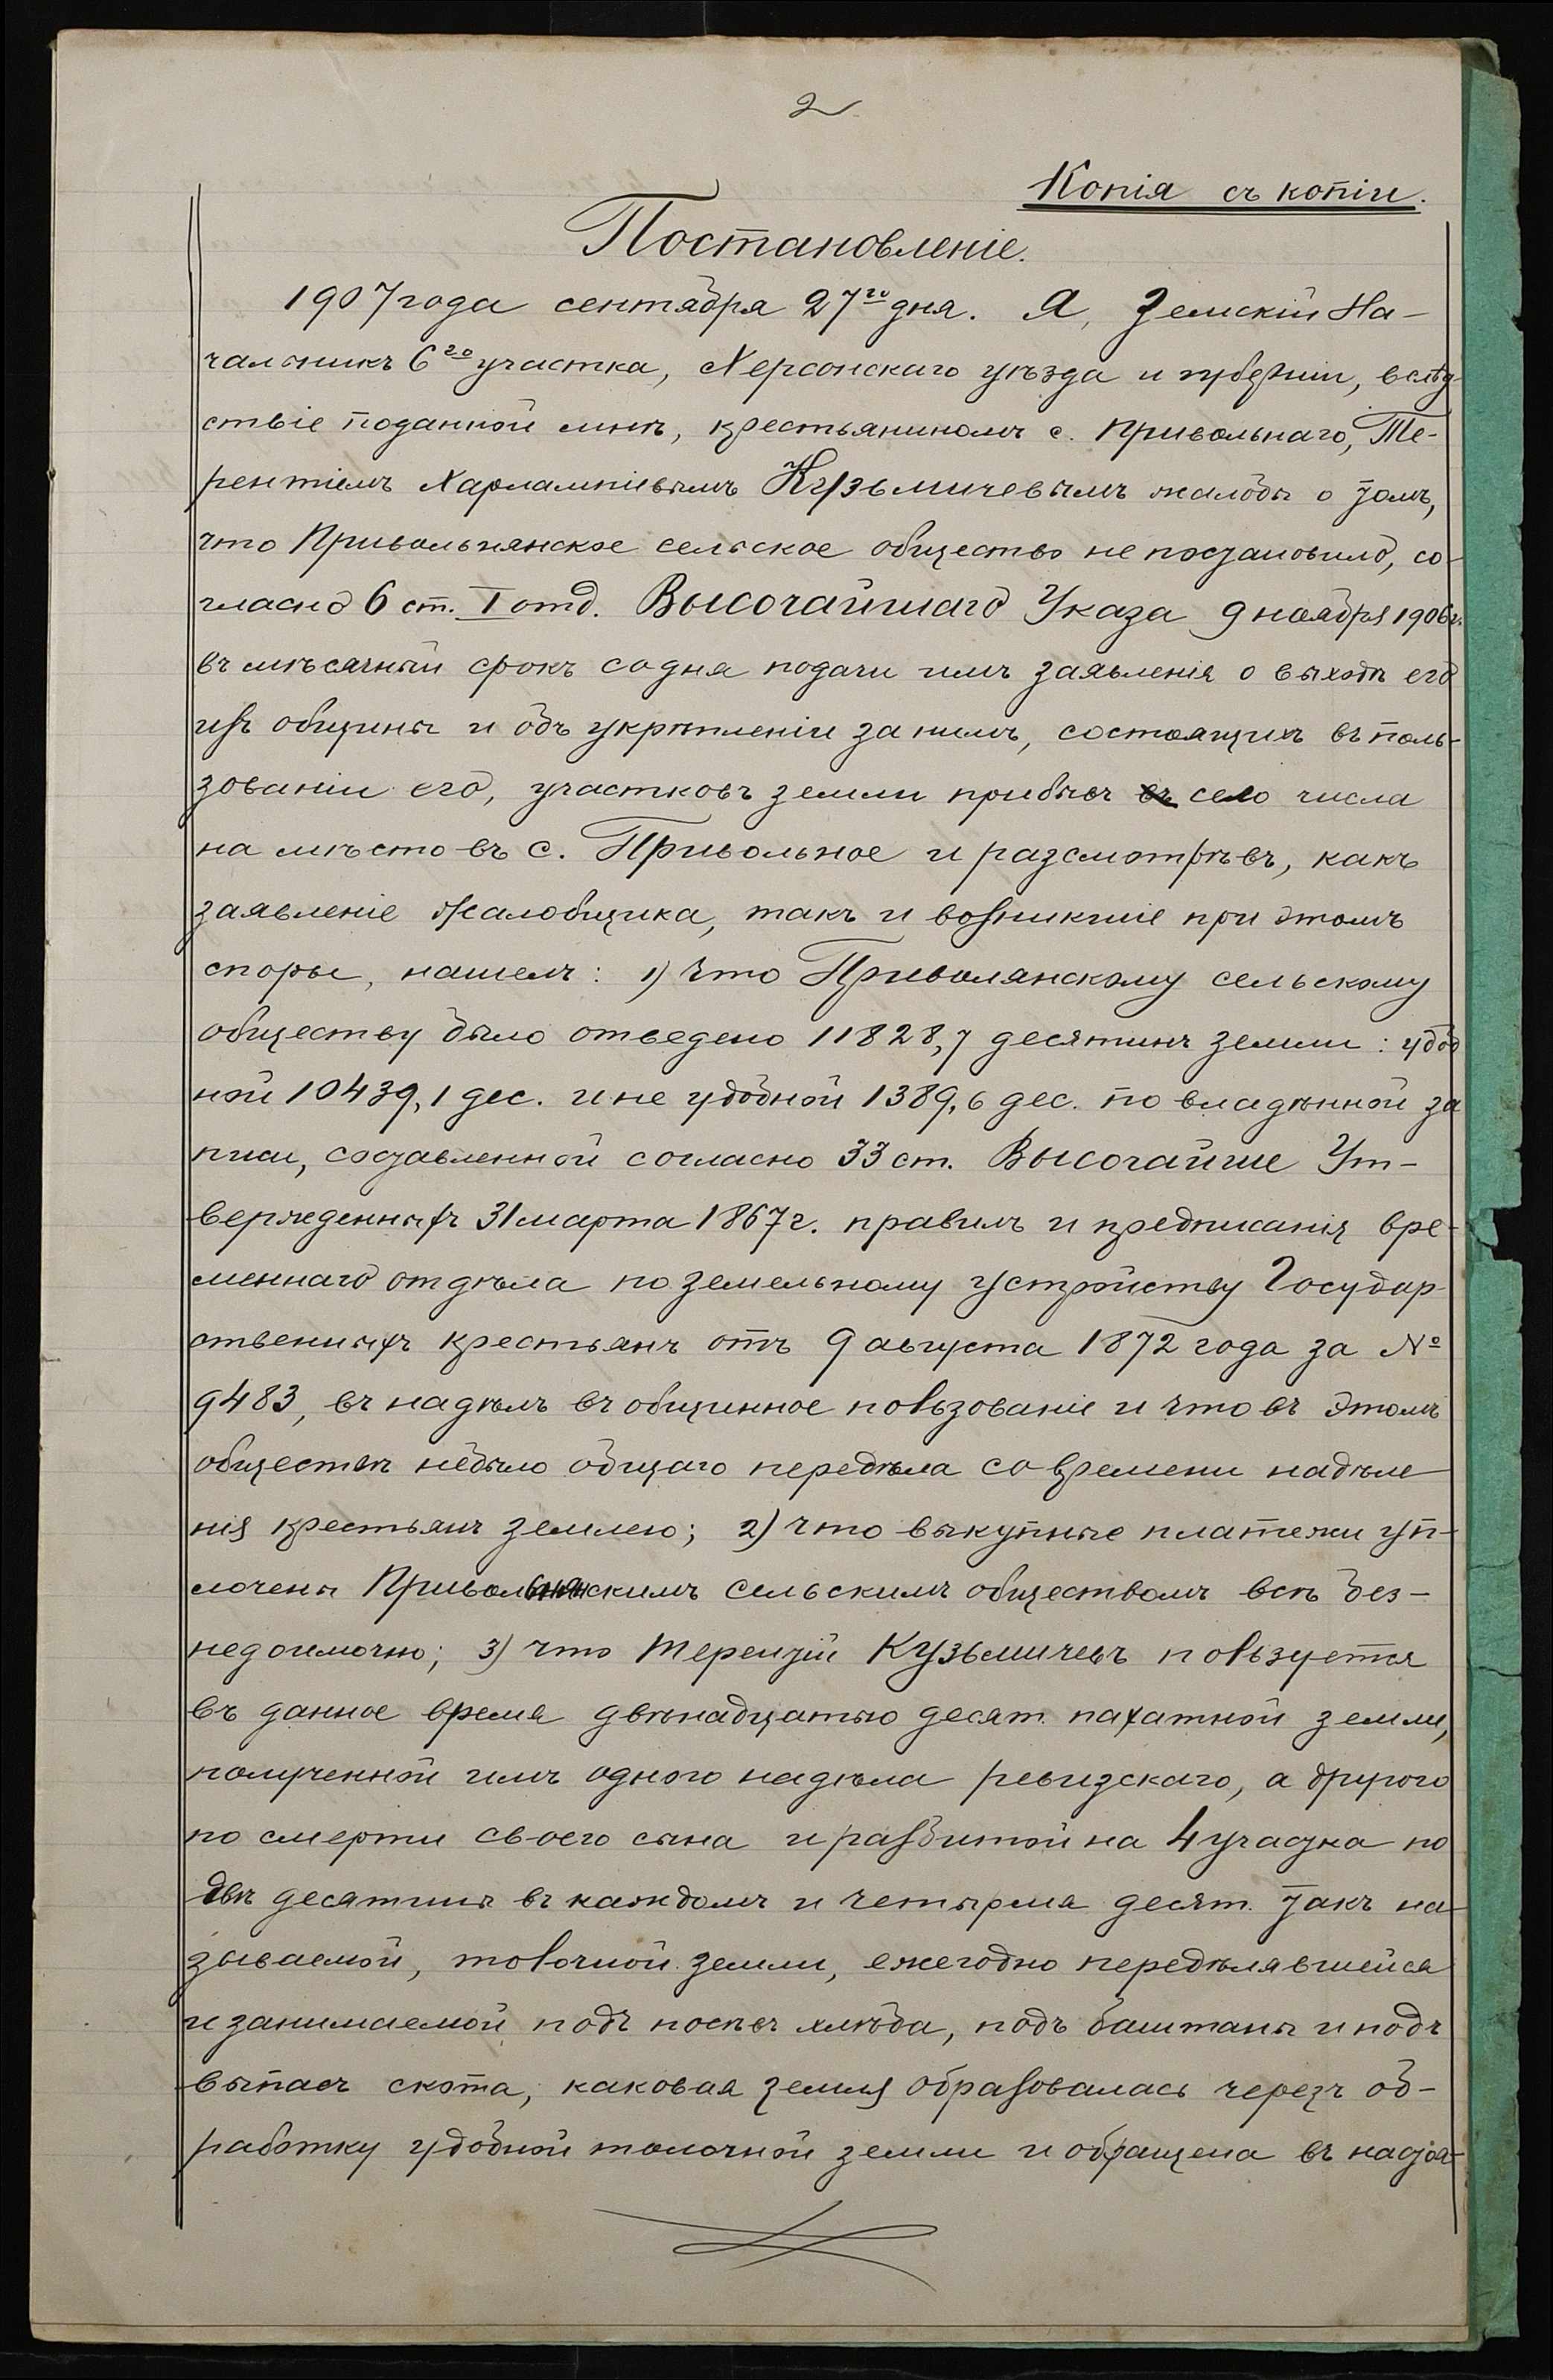 2
Копія съ копіи.
Постановленіе.
1907 года сентября 27го дня. Я, Земскій На-
чальникъ 6го участка, Херсонскаго уѣзда и губерніи, вслѣд-
ствіе поданной мнѣ, крестьяниномъ с. Привольнаго, Те-
рентіемъ Харлампіевымъ Кузьмичевымъ жалобы о томъ,
что Привольнянское сельское общество не постановило, со-
гласно 6 ст. I отд. Высочайшаго Указа 9 ноября 1906 г.
въ мѣсячный срокъ со дня подачи имъ заявленія о выходѣ его
изъ общины и объ укрѣпленіи за нимъ, состоящихъ въ поль-
зованіи его, участковъ земли прибывъ въ село числа
на мѣсто въ с. Привольное и разсмотрѣвъ, какъ
заявленіе жалобщика, такъ и возникшіе при этомъ
споры, нашелъ: 1) что Приволянскому сельскому
обществу было отведено 11828,7 десятинъ земли: удоб
ной 10439,1 дес. и не удобной 1389,6 дес. по владѣнной за
писи, составленной согласно 33 ст. Высочайше Ут-
вержденныхъ 31 марта 1867 г. правилъ и предписанія вре-
меннаго отдѣла по земельному устройству Государ
ственныхъ крестьянъ отъ 9 августа 1872 года за №
9483, въ надѣлъ въ общинное пользованіе и что въ этомъ
обществѣ небыло общаго передѣла со времени надѣле
нія крестьянъ землею; 2) что выкупные платежи уп-
лочены Привольнянскимъ сельскимъ обществомъ всѣ без-
недоимочно; 3) что Терентій Кузьмичевъ пользуется
въ данное время двѣнадцатью десят. пахатной земли,
полученной имъ одного надѣла ревизскаго, а другого
по смерти своего сына и разбитой на 4 участка по
двѣ десятины въ каждомъ и четырмя десят. такъ на-
зываемой, толочной земли, ежегодно передѣлявшейся
и занимаемой подъ посѣвъ хлѣба, подъ баштаны и подъ
выпасъ скота, каковая земля образовалась черезъ об-
работку удобной толочной земли и обращена въ настоя-